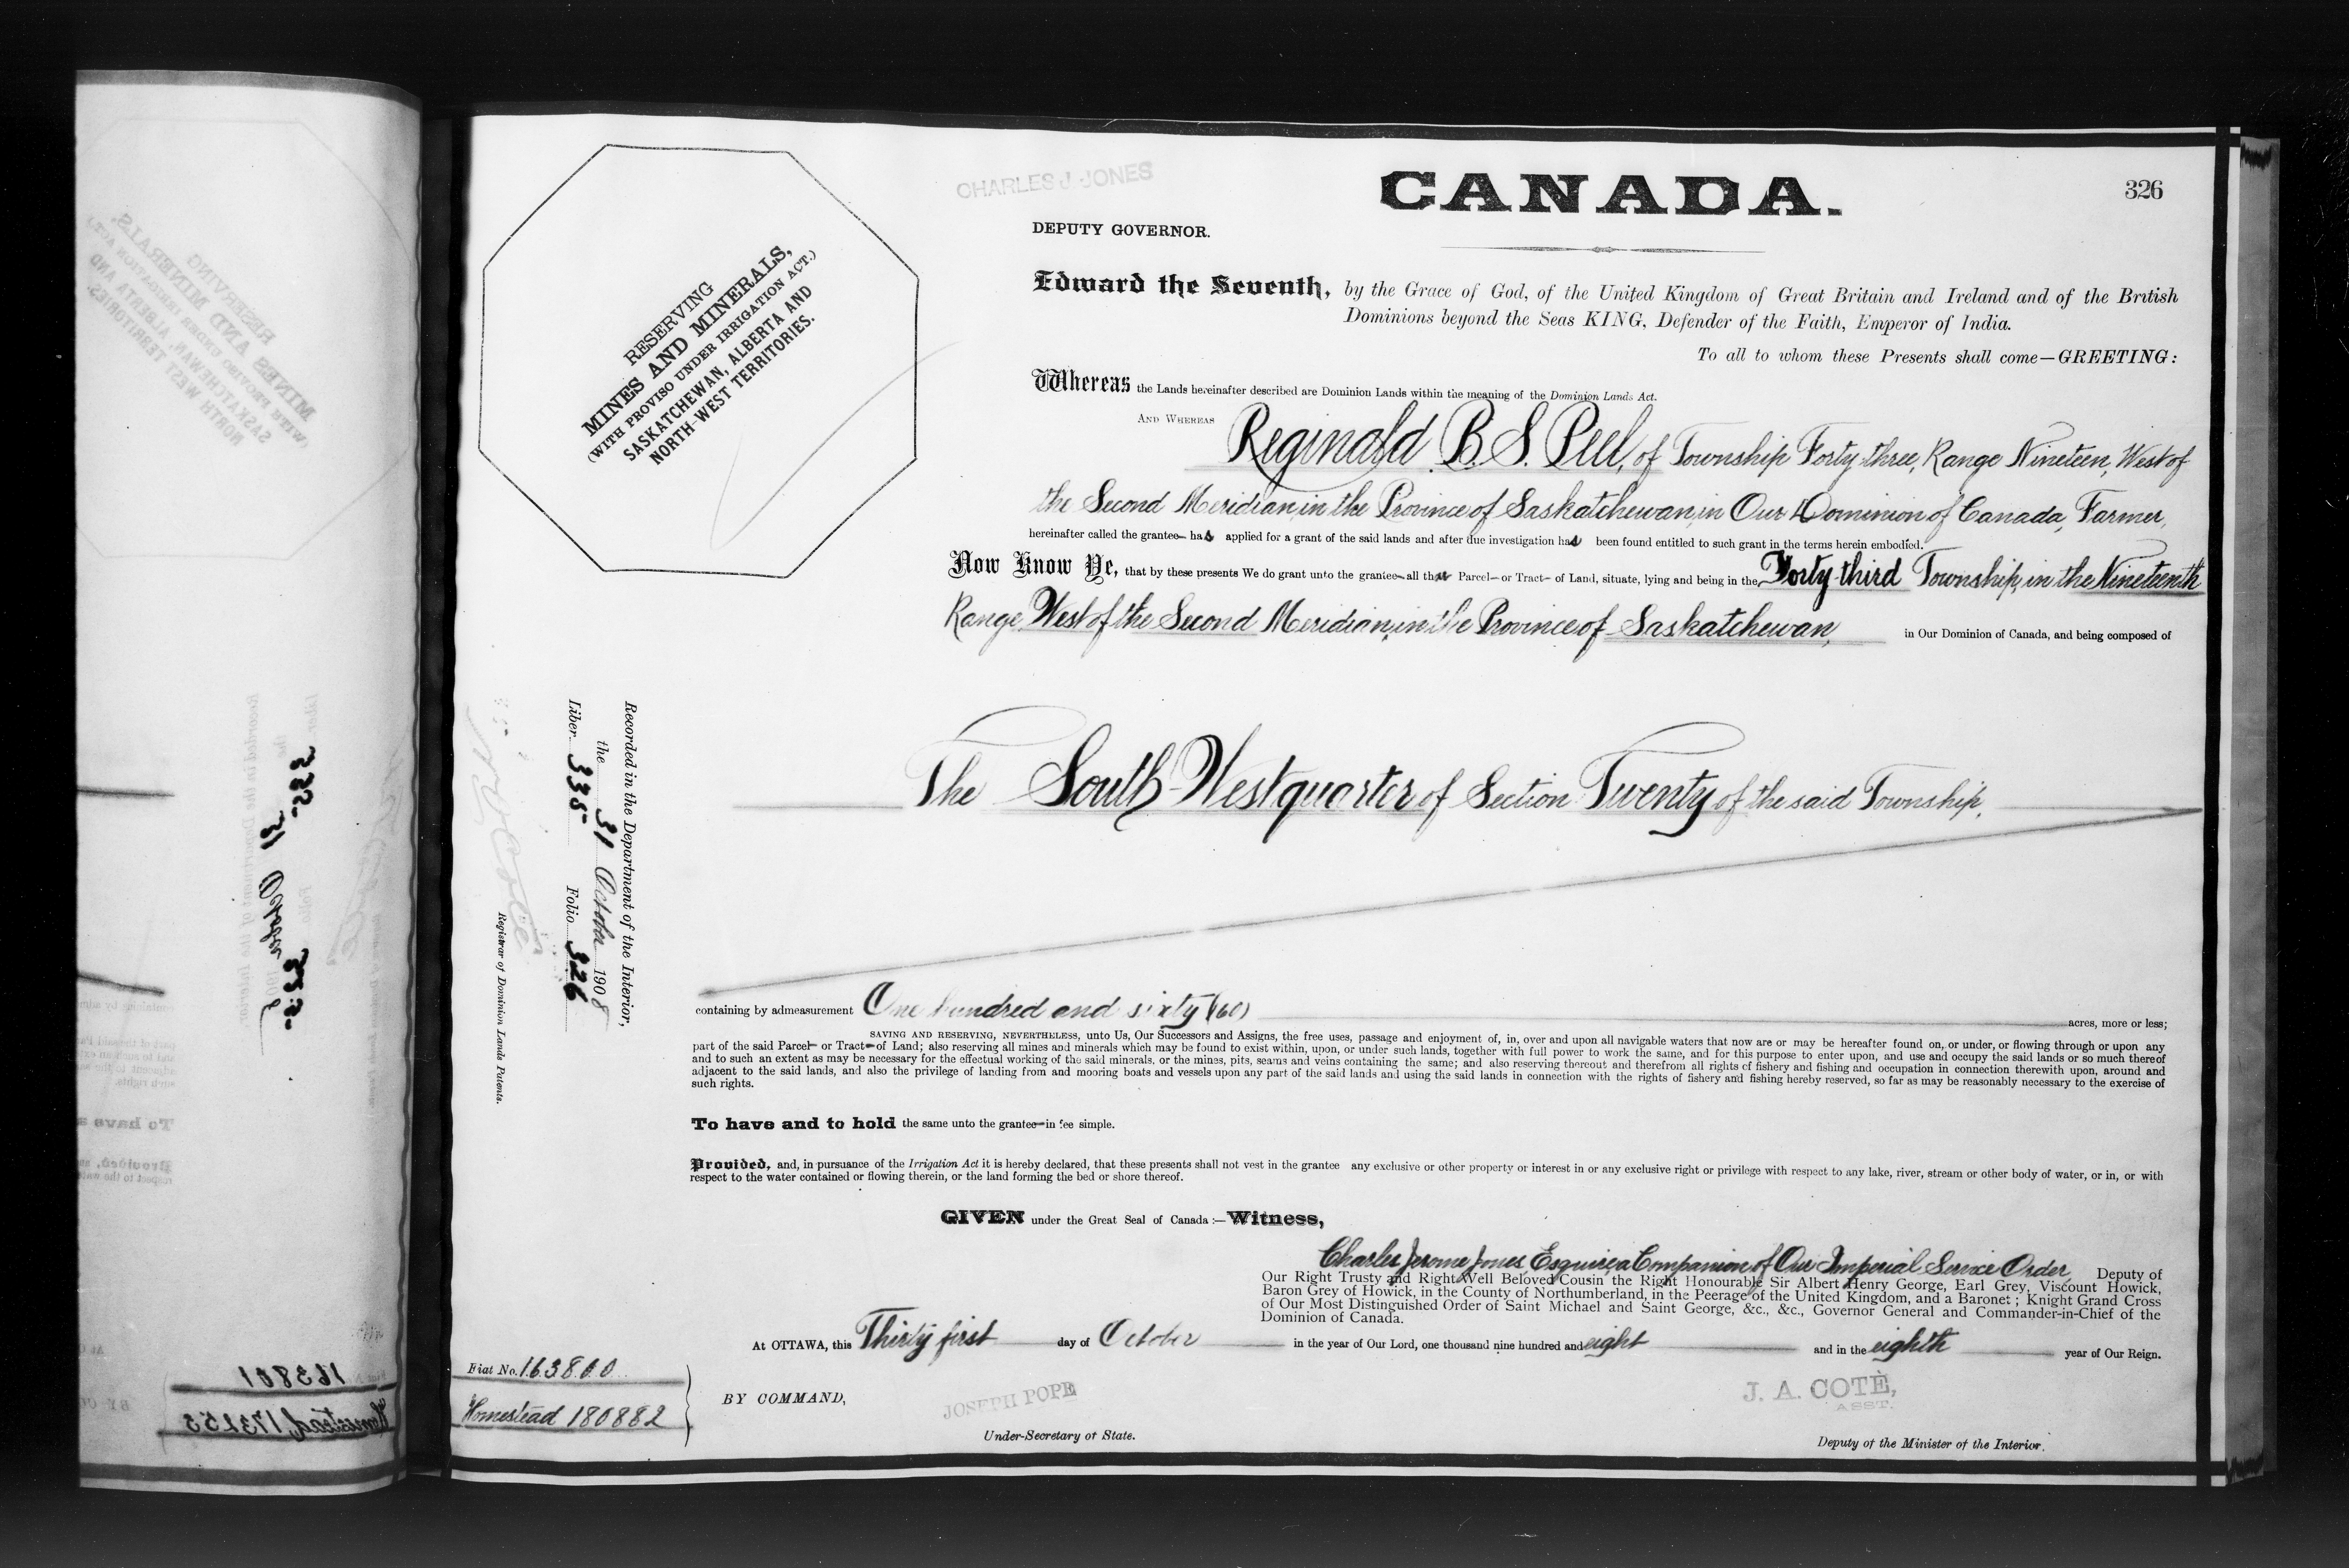 CHARLES J. JONES
CANADA.
326
DEPUTY GOVERNOR.
RESERVING
MINES AND MINERALS,
(WITH PROVISO UNDER IRRIGATION ACT.)
SASKATCHEWAN, ALBERTA AND
NORTH-WEST TERRITORIES.
Edward the Seventh, by the Grace of God, of the United Kingdom of Great Britain and Ireland and of the British
Dominions beyond the Seas KING, Defender of the Faith, Emperor of India.
To all to whom these Presents shall come—GREETING:
Whereas the Lands hereinafter described are Dominion Lands within the meaning of the Dominion Lands Act.
AND WHEREAS Reginald B. S. Peel, of Township Forty-three, Range Nineteen, West of
the Second Meridian, in the Province of Saskatchewan, in Our Dominion of Canada, Farmer,
hereinafter called the grantee— has applied for a grant of the said lands and after due investigation has been found entitled to such grant in the terms herein embodied.
Now Know Ye, that by these presents We do grant unto the grantee— all that Parcel— or Tract— of Land, situate, lying and being in the Forty-third Township, in the Nineteenth
Range West of the Second Meridian, in the Province of Saskatchewan, in Our Dominion of Canada, and being composed of
The South-West quarter of Section Twenty of the said Township.
Recorded in the Department of the Interior,
the 31 October 1908
Liber 335 Folio 326
Registrar of Dominion Lands Patents.
containing by admeasurement One hundred and sixty (160) acres, more or less;
SAVING AND RESERVING, NEVERTHELESS, unto Us, Our Successors and Assigns, the free uses, passage and enjoyment of, in, over and upon all navigable waters that now are or may be hereafter found on, or under, or flowing through or upon any
part of the said Parcel— or Tract— of Land; also reserving all mines and minerals which may be found to exist within, upon, or under such lands, together with full power to work the same, and for this purpose to enter upon, and use and occupy the said lands or so much thereof
and to such an extent as may be necessary for the effectual working of the said minerals, or the mines, pits, seams and veins containing the same; and also reserving thereout and therefrom all rights of fishery and fishing and occupation in connection therewith upon, around and
adjacent to the said lands, and also the privilege of landing from and mooring boats and vessels upon any part of the said lands and using the said lands in connection with the rights of fishery and fishing hereby reserved, so far as may be reasonably necessary to the exercise of
such rights.
To have and to hold the same unto the grantee— in fee simple.
Provided, and, in pursuance of the Irrigation Act it is hereby declared, that these presents shall not vest in the grantee any exclusive or other property or interest in or any exclusive right or privilege with respect to any lake, river, stream or other body of water, or in, or with
respect to the water contained or flowing therein, or the land forming the bed or shore thereof.
GIVEN under the Great Seal of Canada:—Witness,
Charles Jerome Jones, Esquire, a Companion of Our Imperial Service Order, Deputy of
Our Right Trusty and Right Well Beloved Cousin the Right Honourable Sir Albert Henry George, Earl Grey, Viscount Howick,
Baron Grey of Howick, in the County of Northumberland, in the Peerage of the United Kingdom, and a Baronet; Knight Grand Cross
of Our Most Distinguished Order of Saint Michael and Saint George, &c., &c., Governor General and Commander-in-Chief of the
Dominion of Canada.
At OTTAWA, this Thirty first day of October in the year of Our Lord, one thousand nine hundred and eight and in the eighth year of Our Reign.
Fiat No. 163800
Homestead 180882
BY COMMAND,
JOSEPH POPE
Under-Secretary of State.
J. A. COTÉ,
ASST.
Deputy of the Minister of the Interior.